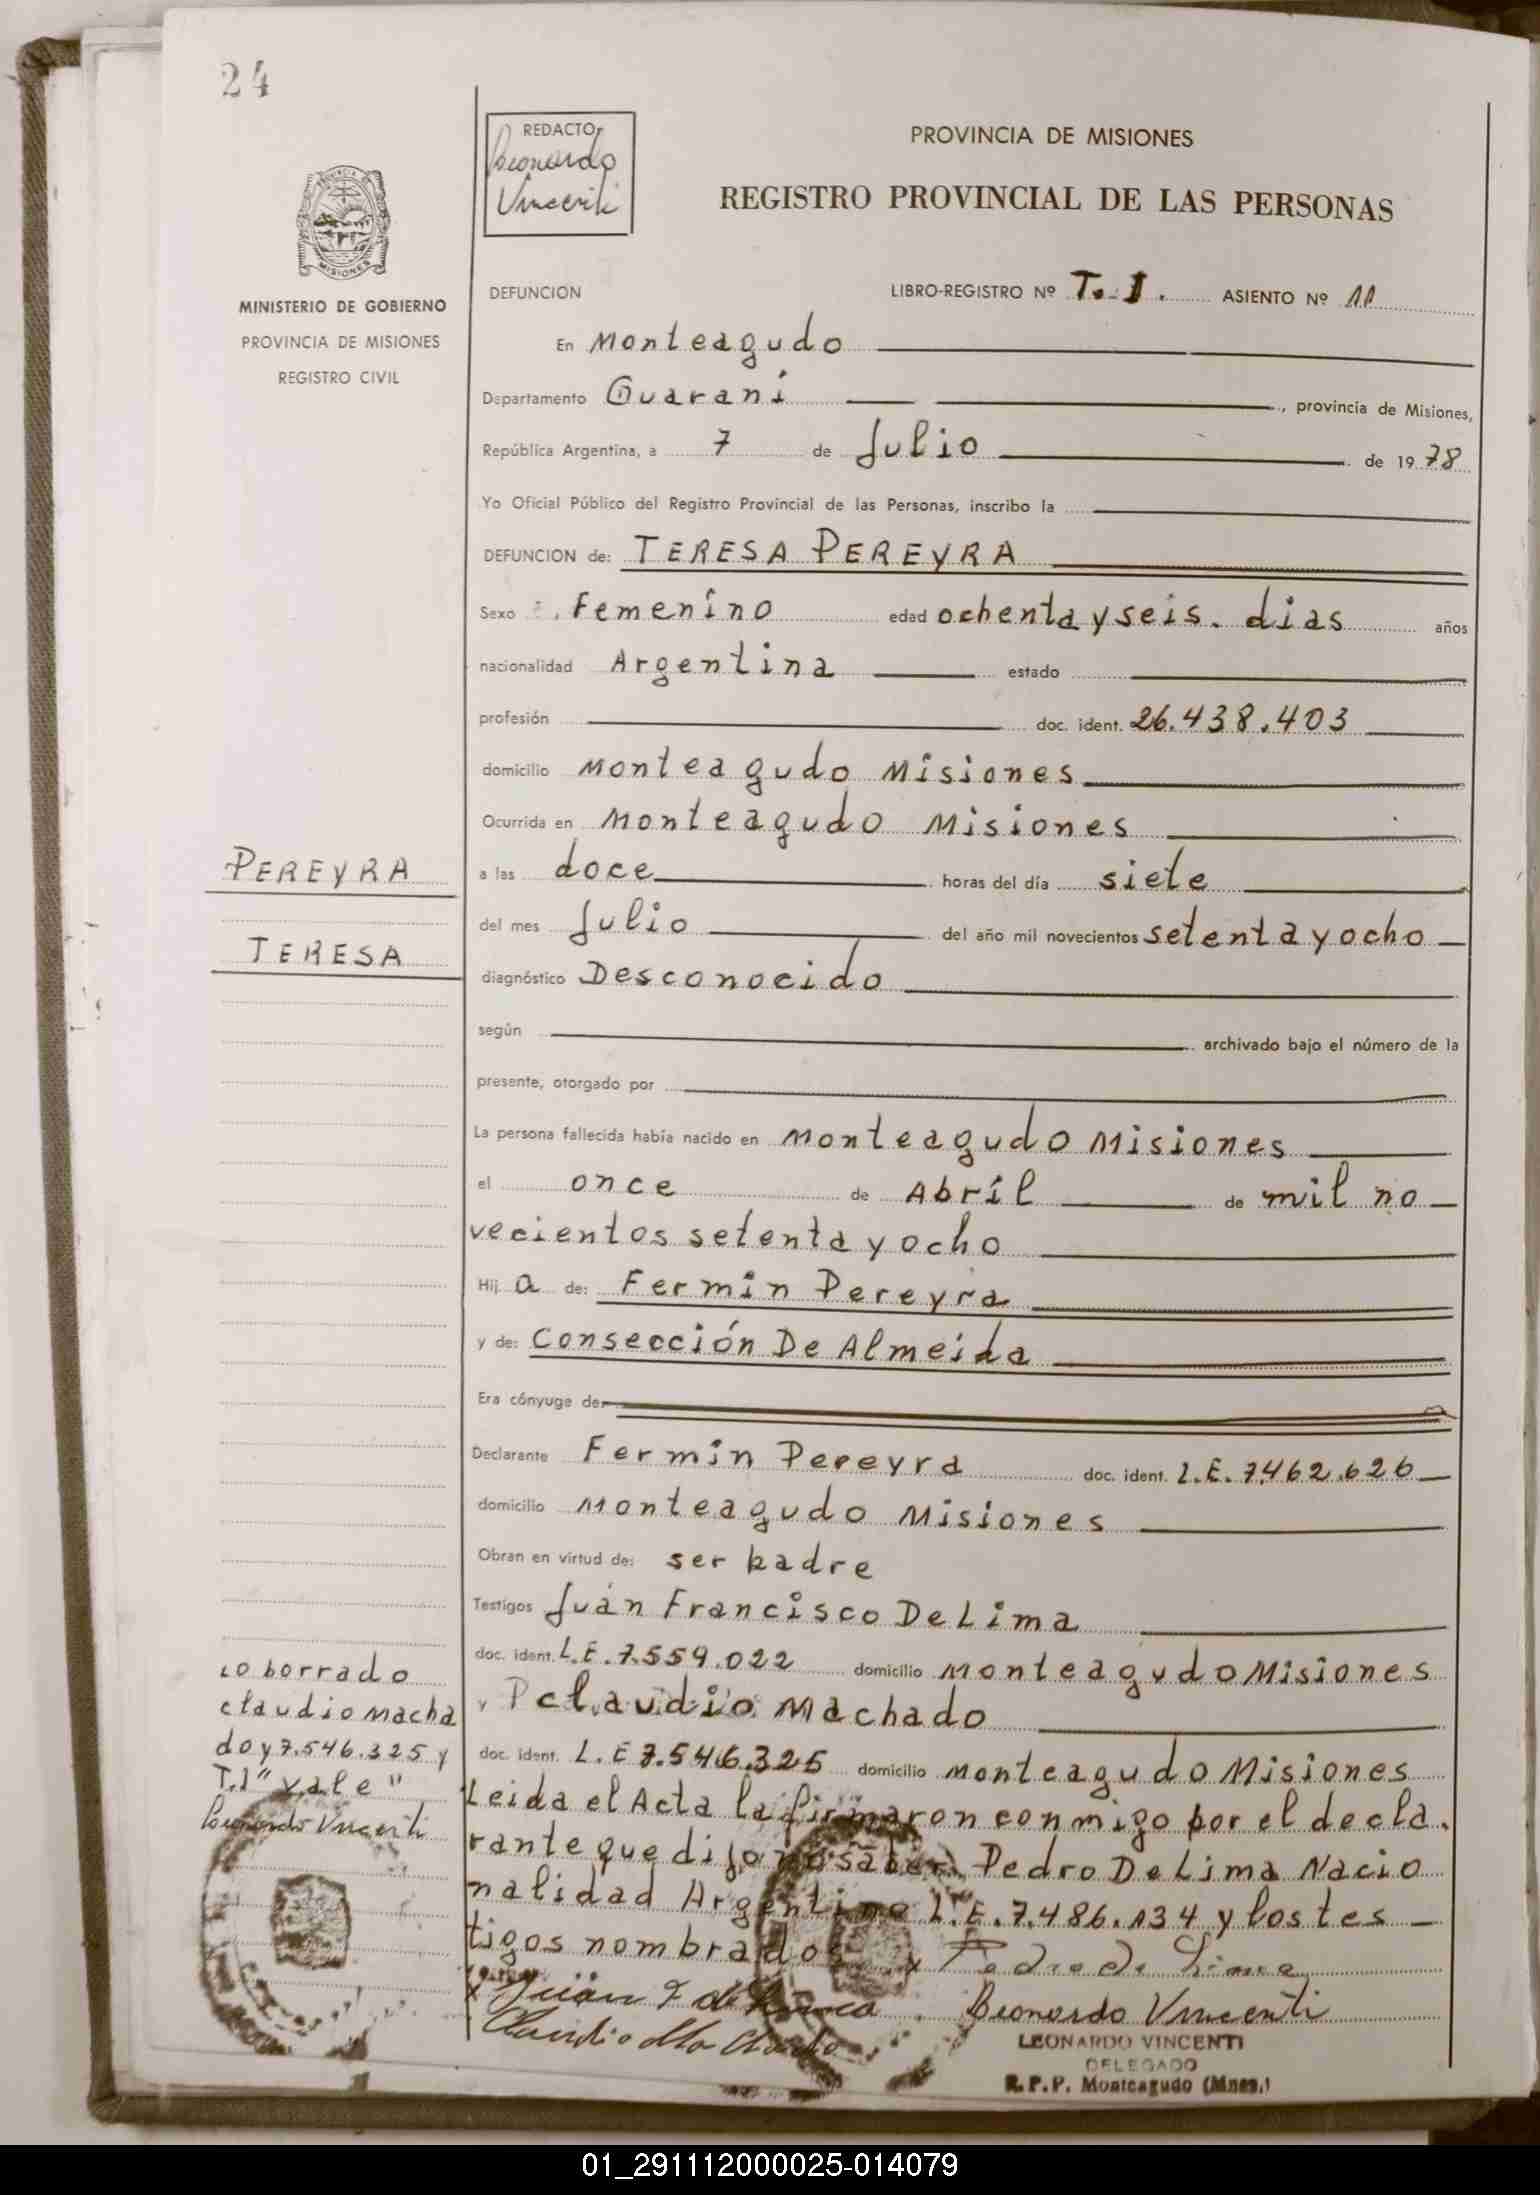 24
REDACTO:
Leonardo
Vincenti
PROVINCIA DE MISIONES
REGISTRO PROVINCIAL DE LAS PERSONAS
MISIONES
MINISTERIO DE GOBIERNO
PROVINCIA DE MISIONES
REGISTRO CIVIL
DEFUNCION LIBRO-REGISTRO Nº T. 1. ASIENTO Nº 11
En Monteagudo
Departamento Guaraní, provincia de Misiones,
República Argentina, a 7 de Julio de 1978
Yo Oficial Público del Registro Provincial de las Personas, inscribo la
DEFUNCION de: TERESA PEREYRA
Sexo Femenino edad ochenta y seis. dias años
nacionalidad Argentina estado
profesión doc. ident. 26.438.403
domicilio Monteagudo Misiones
Ocurrida en Monteagudo Misiones
a las doce horas del día siete
del mes Julio del año mil novecientos setenta y ocho
diagnóstico Desconocido
según archivado bajo el número de la
presente, otorgado por
La persona fallecida había nacido en Monteagudo Misiones
el once de Abril de mil no
vecientos setenta y ocho
Hij a de: Fermin Pereyra
y de: Consección De Almeida
Era cónyuge de
Declarante Fermin Pereyra doc. ident. L.E. 7.462.626
domicilio Monteagudo Misiones
Obran en virtud de: ser padre
Testigos Juan Francisco De Lima
doc. ident. L.E. 7.559.022 domicilio Monteagudo Misiones
y Claudio Machado
doc. ident. L.E 7.546.325 domicilio Monteagudo Misiones
Leida el Acta la firmaron conmigo por el decla.
rante que dijo no saber, Pedro De Lima Nacio
nalidad Argentino L.E. 7.486.134 y los tes
tigos nombrados x Pedro de Lima
x Juan F de Lima Leonardo Vincenti
Claudio Machado
LEONARDO VINCENTI
DELEGADO
R.P.P. Monteagudo (Mnes.)
PEREYRA
TERESA
Lo borrado
claudio Macha
do y 7.546.325 y
T.1 "Vale"
Leonardo Vincenti
01_291112000025-014079